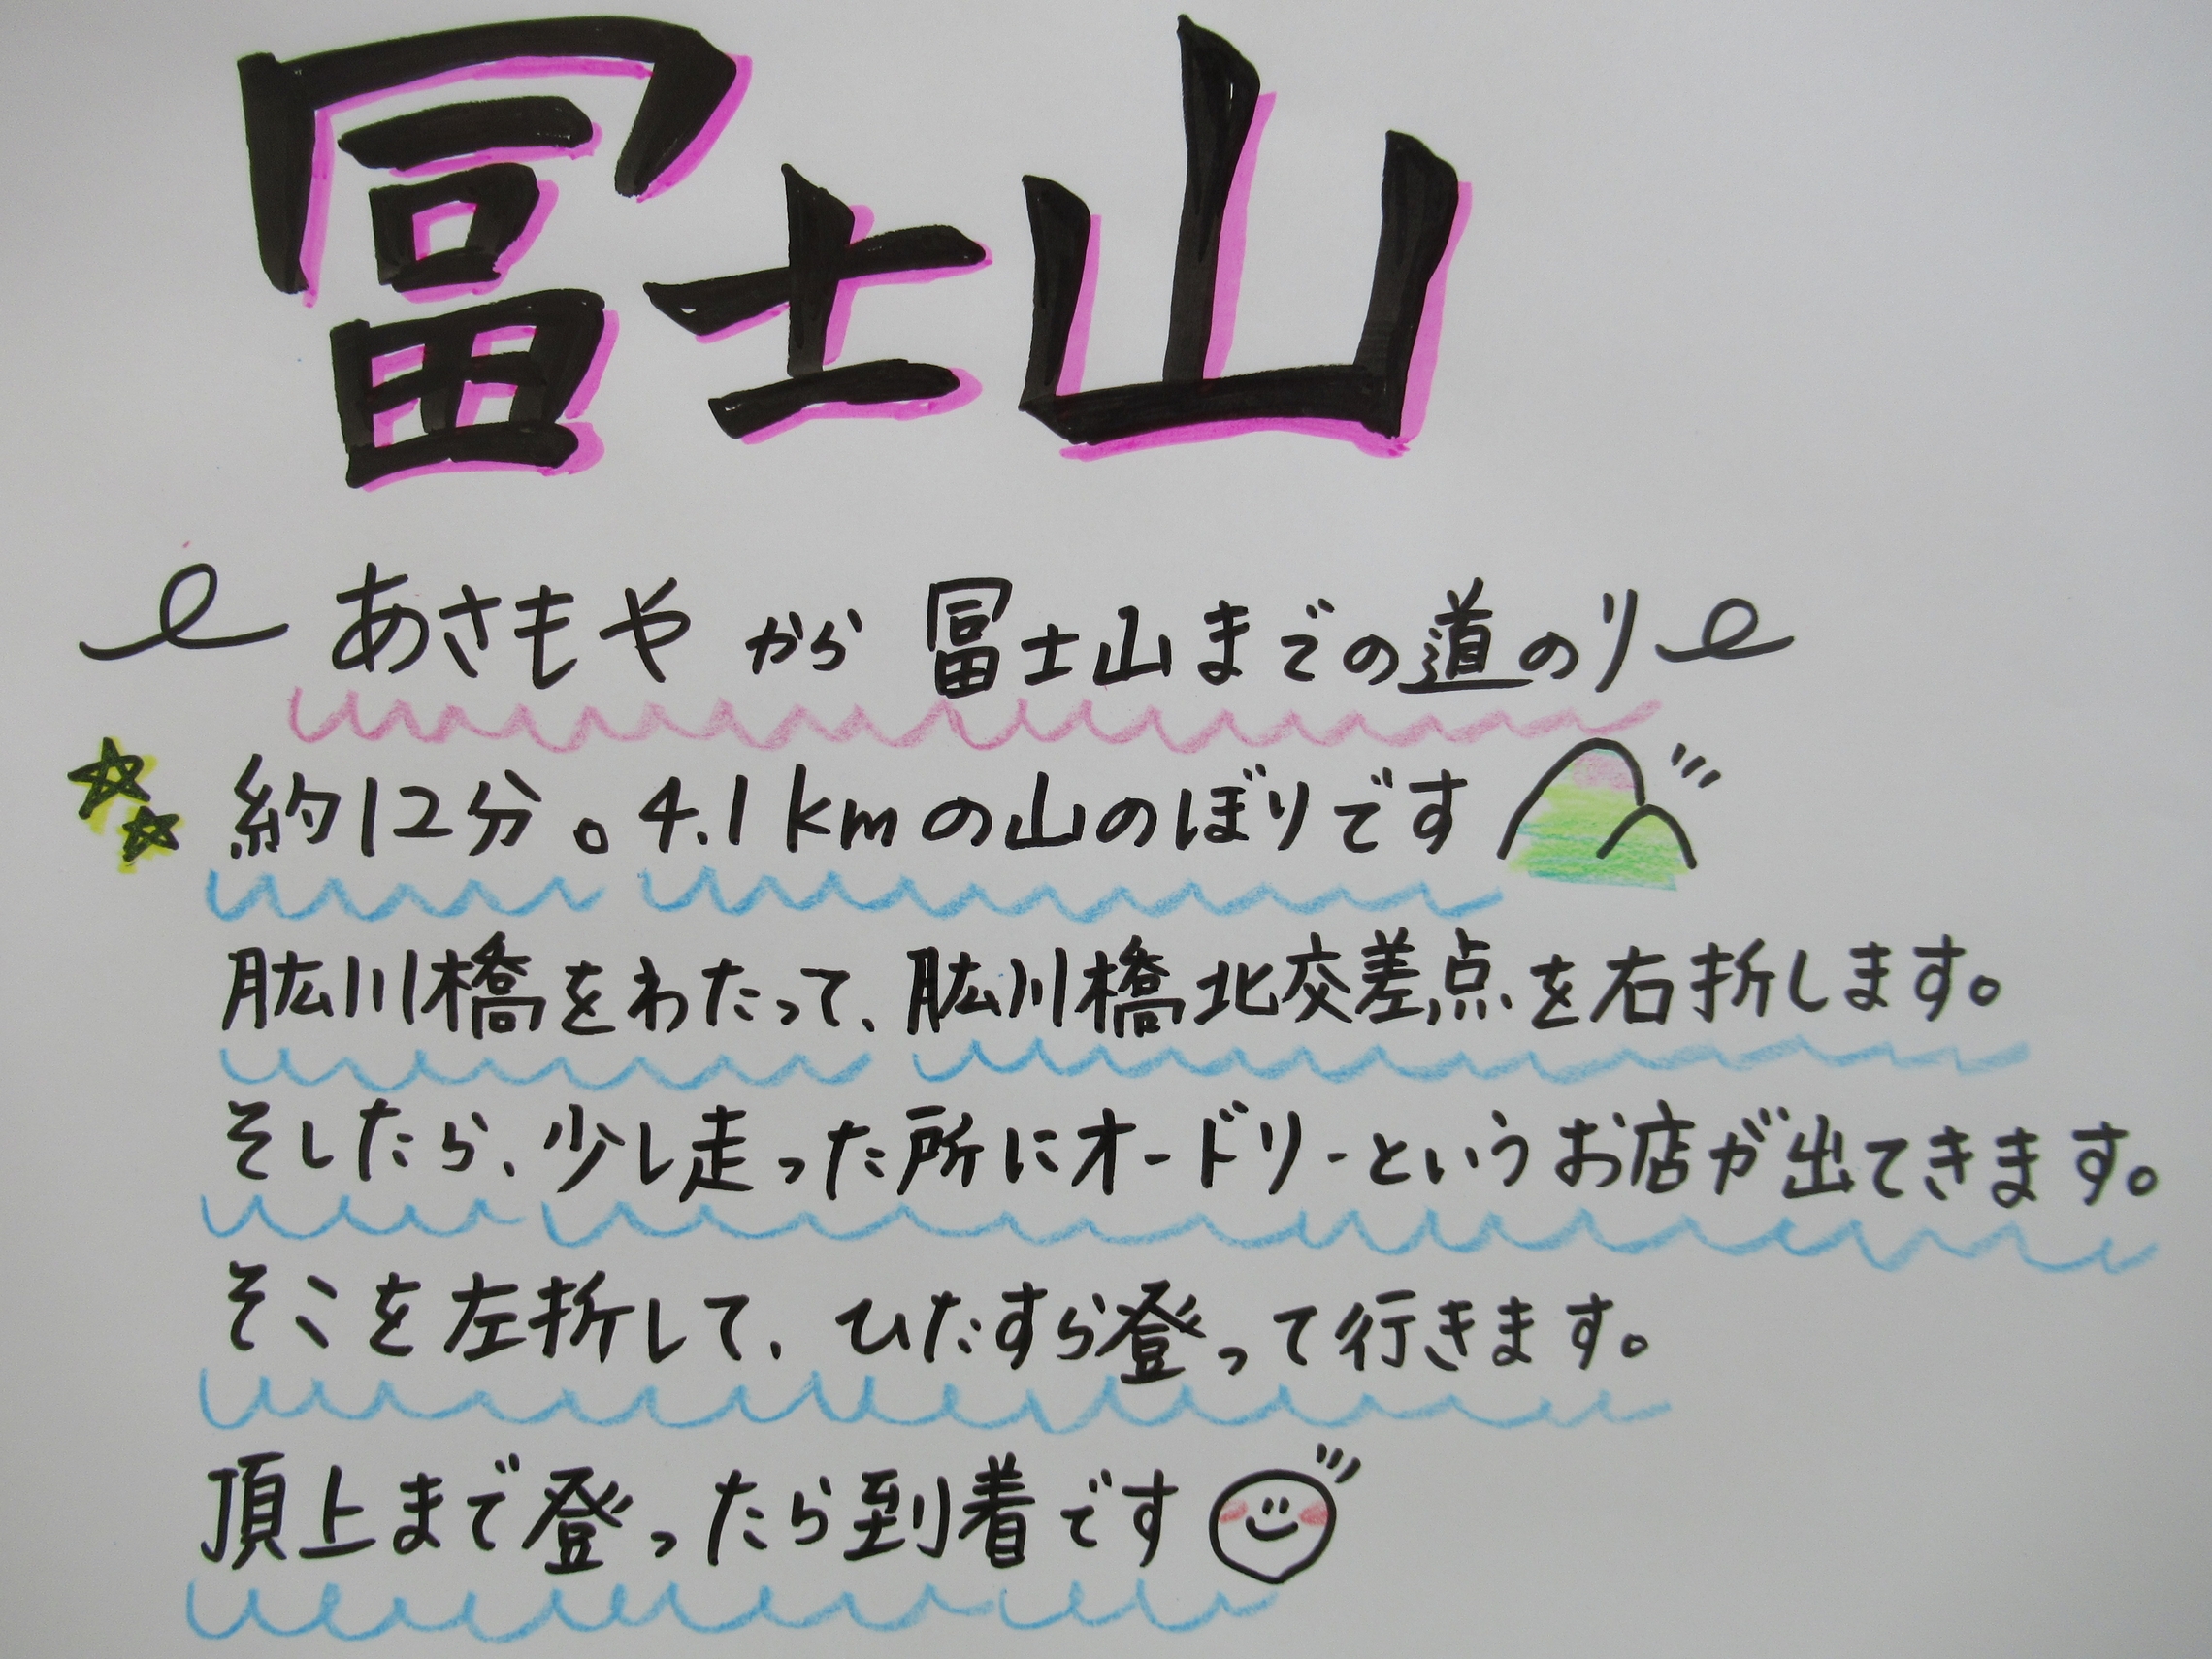 冨士山
あさもや から 冨士山までの道のり
約12分。4.1kmの山のぼりです
肱川橋をわたって、肱川橋北交差点を右折します。
そしたら、少し走った所にオードリーというお店が出てきます。
そこを左折して、ひたすら登って行きます。
頂上まで登ったら到着です